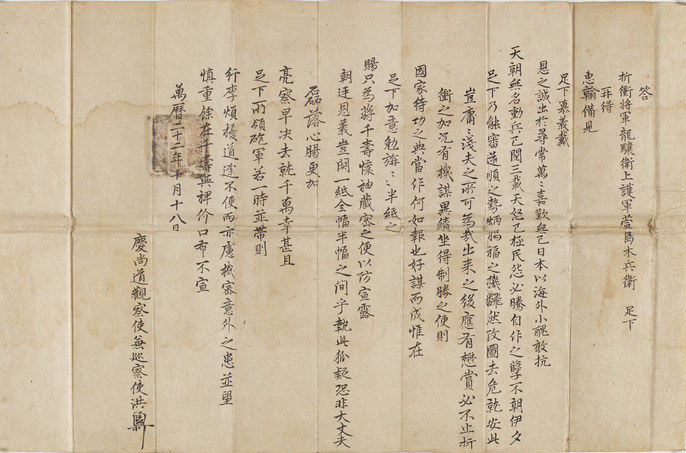 答
折衝將軍龍驤衛上護軍萱島木兵衛 足下
再得
惠翰備見
足下慕義戴
恩之誠出於尋常萬〻嘉歎無已日本以海外小醜敢抗
天朝無名動兵已閱三載天怒已極民怨必騰自作之孽不朝伊夕
足下乃能審逆順之勢炳禍福之機飜然改圖去危就安此
豈庸〻淺夫之所可爲哉出来之後應有懋賞必不止折
衝之加况有機謀異績坐得制勝之便則
國家待功之典當作何如報也好謀而成惟在
足下加意勉旃〻〻半紙之
賜只爲蔣千壽懷袖藏密之便以防宣露
朝廷恩義豈閱一紙全幅半幅之间乎執此狐疑恐非大丈夫
磊落心腸更加
亮察早决去就千萬幸甚且
足下所領砲軍若一時並帶則
行李煩擾道途不便而亦慮機密意外之患並望
慎重餘在千壽與裨价口布不宣
萬曆二十二年十月十八日
慶尚道觀察使兼巡察使洪